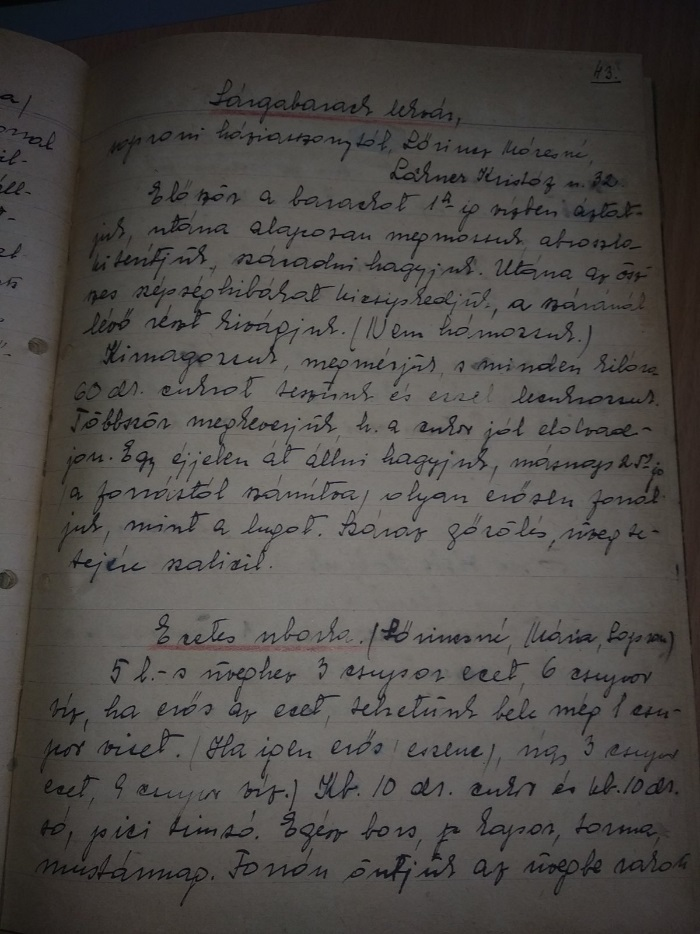 43.
Sárgabarack lekvár,
soproni háziasszonytól, Lőrincz Móricné,
Lackner Kristóf u. 32.
Először a barackot 1/4 ig vízben áztat-
juk, utána alaposan megmossuk, abroszra
kiterítjük, száradni hagyjuk. Utána az ösz-
szes szépséghibákat kicsipkedjük, a száránál
lévő részt kivágjuk. (Nem hámozzuk.)
Kimagozzuk, megmérjük, s minden kilóra
60 dk. cukrot teszünk és ezzel lecukrozzuk.
Többször megkeverjük h. a cukor jól elolvad-
jon. Egy éjjelen át állni hagyjuk, másnap 25 ig
(a forrástól számítva) olyan erősen forral-
juk, mint a lugot. Száraz gőzölés, üveg te-
tejére szalicil.
Ecetes uborka. (Lőrinczné, Mária, Sopron)
5 l.-s üveghez 3 csupor ecet, 6 csupor
víz, ha erős az ecet, tehetünk bele még 1 csu-
por vizet. (Ha igen erős (eszenc), úgy 3 csupor
ecet, 9 csupor víz.) Kb. 10 dk. cukor és kb. 10 dk.
só, pici timsó. Egész bors, kapor, torma,
mustármag. Forrón öntjük az üvegbe rakott